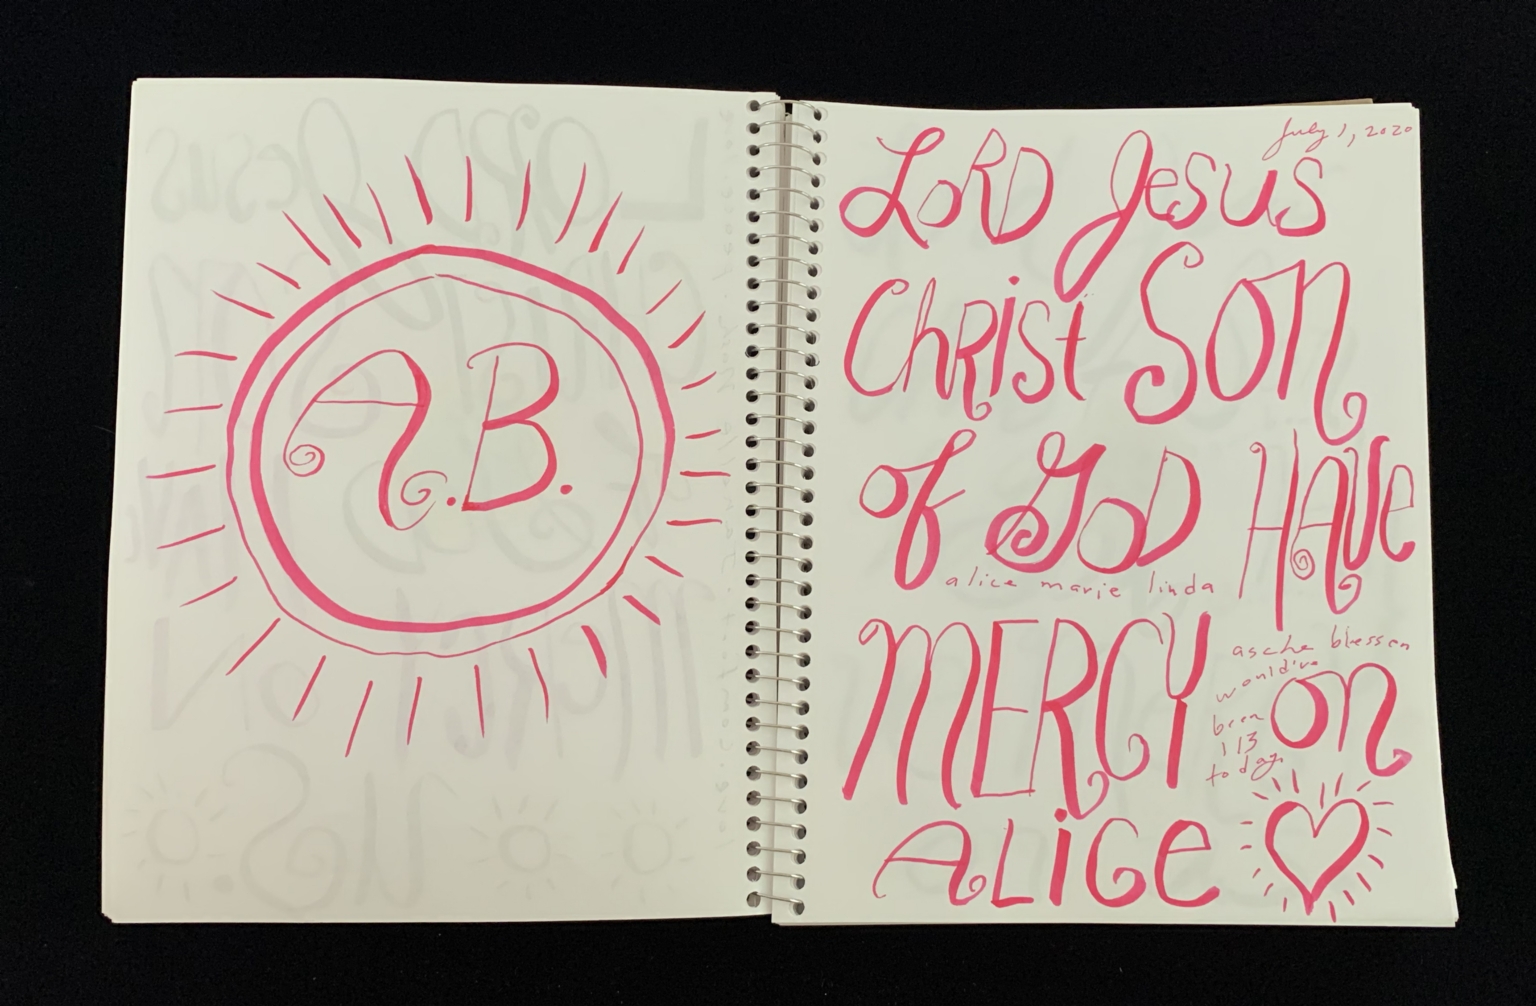 A.B.
July 1, 2020
LORD Jesus
Christ Son
of GOD HAVE
alice marie linda
MERCY on
asche blessen
would've
been
113
today.
ALiCe